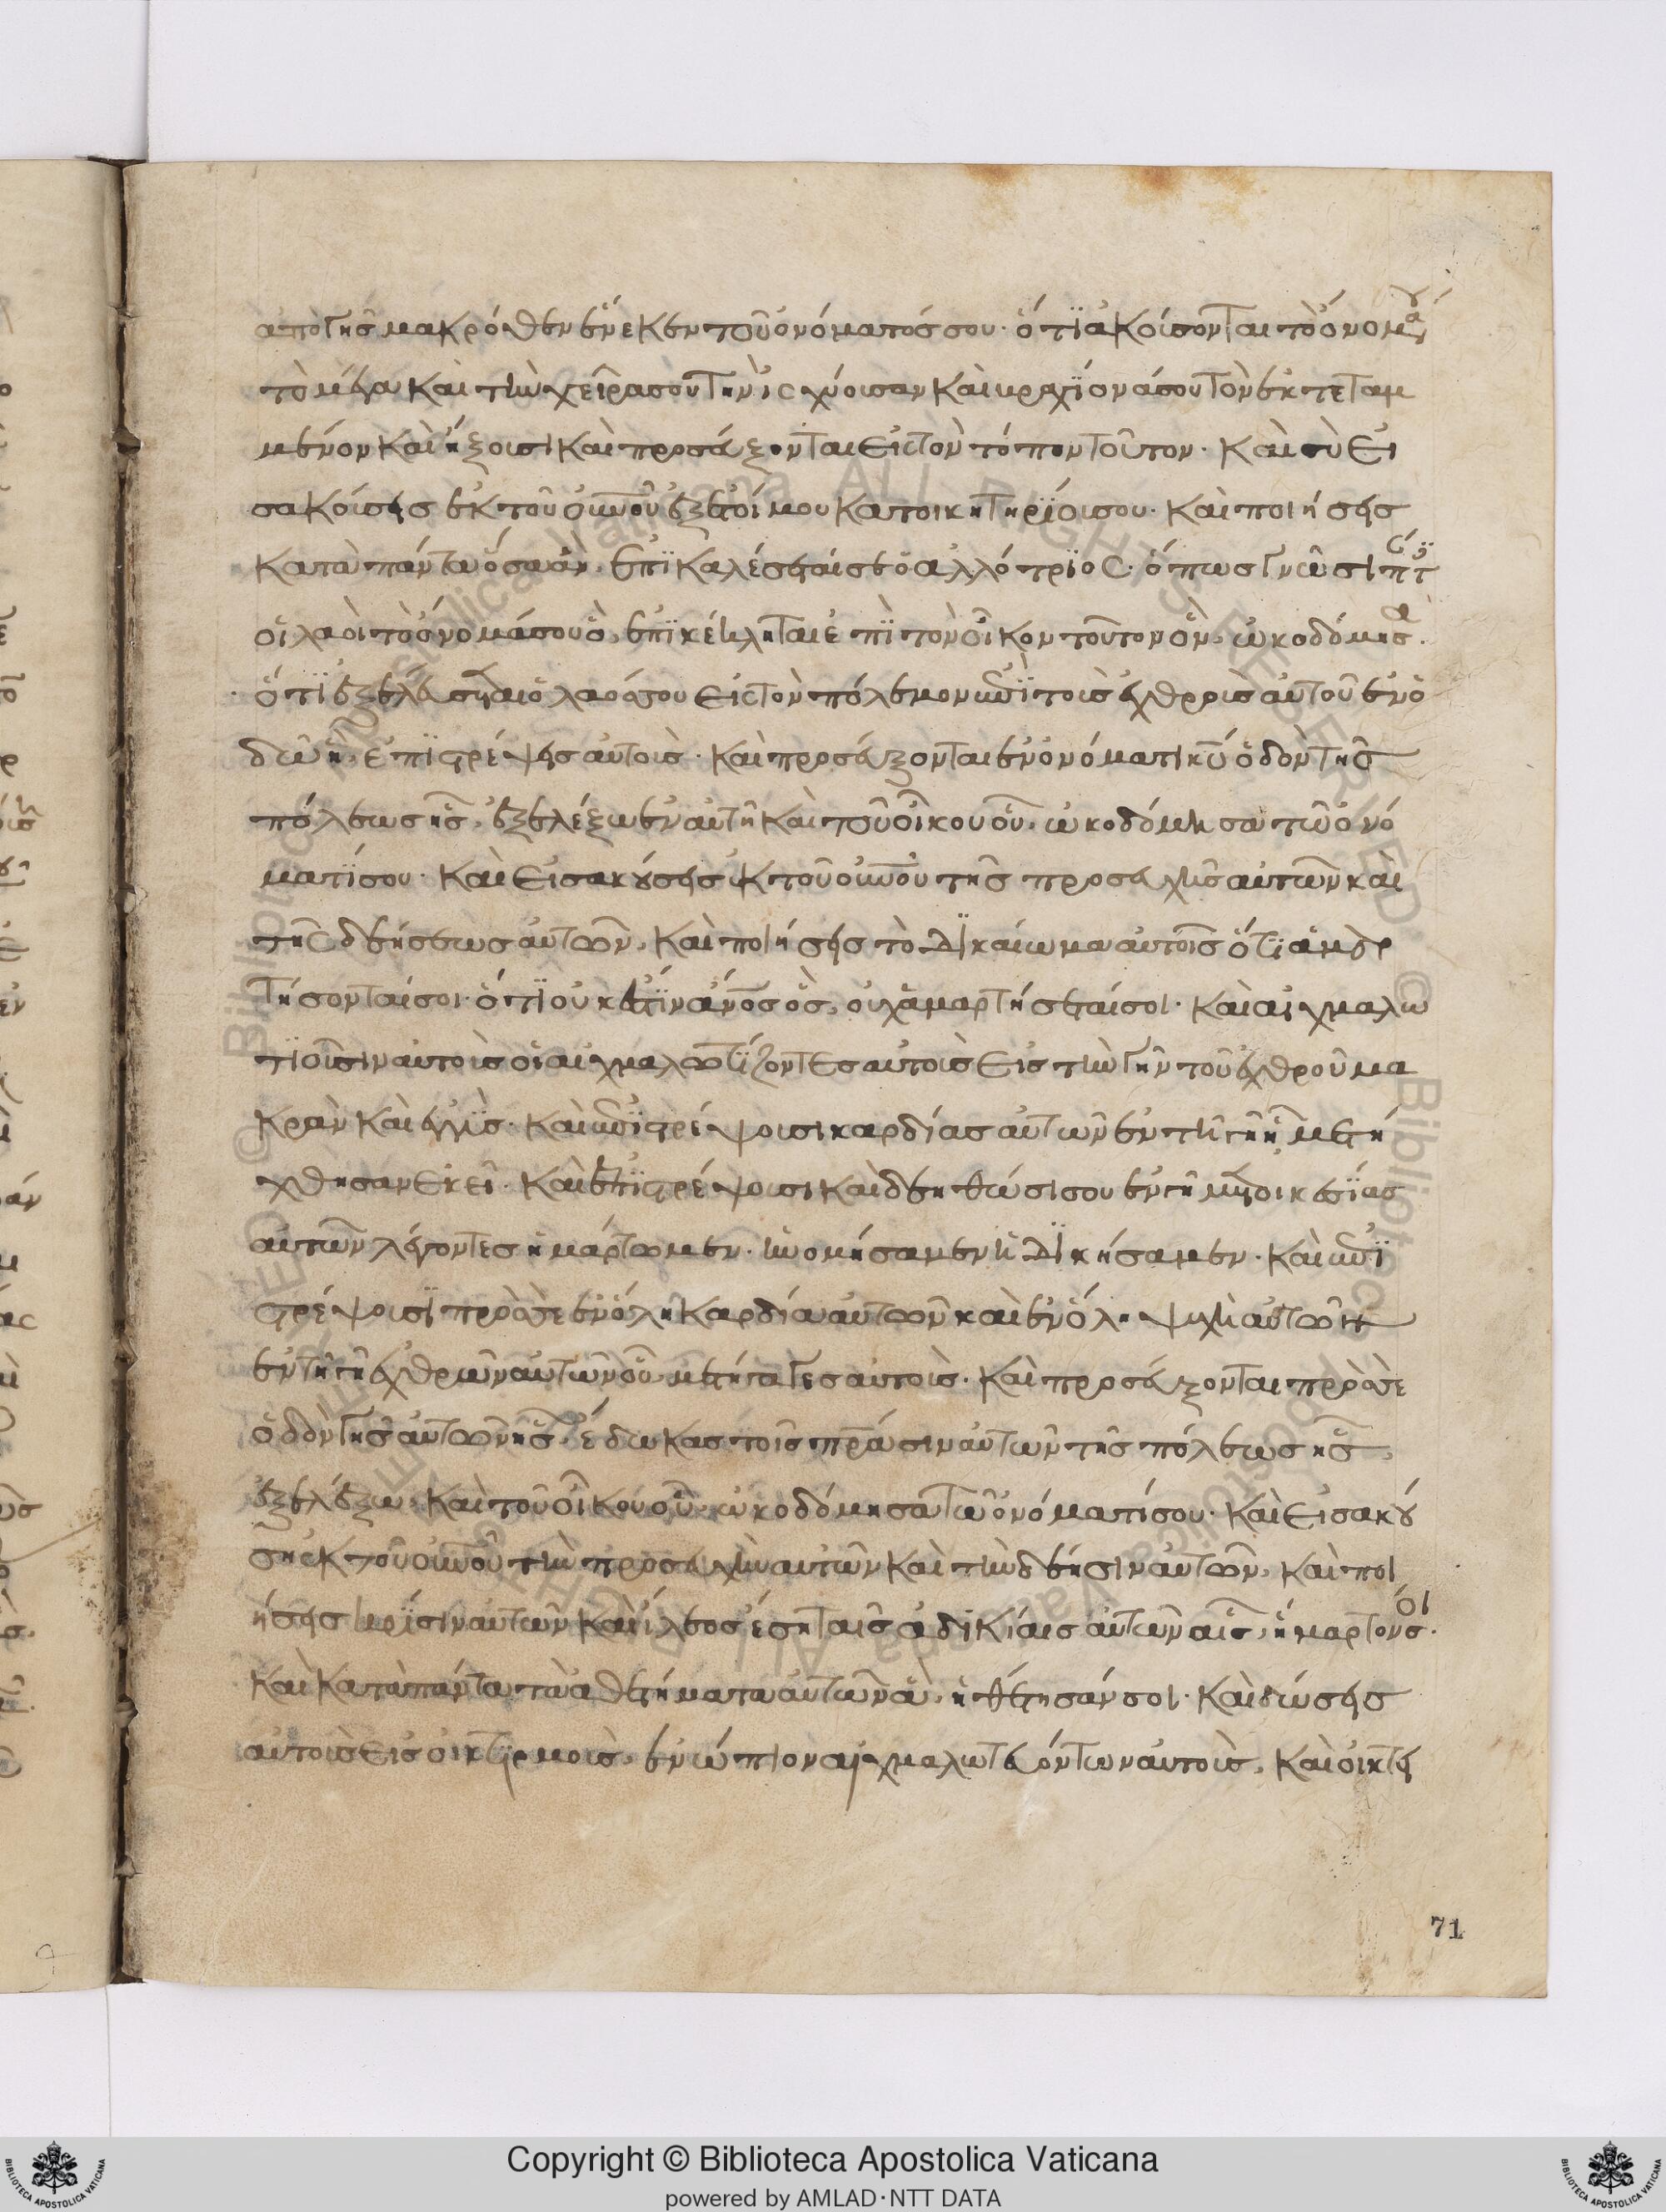 ἀπὸ γῆς μακρόθεν ἕνεκεν τοῦ ὀνόματός σου· ὅτι ἀκούσονται τὸ ὄνομά σου
τὸ μέγα καὶ τὴν χεῖρα σου τὴν ἰσχύουσαν καὶ βραχίονά σου τὸν ἐκτεταμ
μένον καὶ ἥξουσι καὶ προσεύξονται εἰς τὸν τόπον τοῦτον· καὶ σὺ εἰ
σακούσης ἐκ τοῦ οὐνοῦ ἐξ ἑτοίμου κατοικητηρίου σου· καὶ ποιήσης
κατὰ πάντα ὅσα ἂν ἐπικαλέσηταί σε ὁ ἀλλότριος· ὅπως γνῶσι πάντες
οἱ λαοὶ τὸ ὄνομά σου ὃ ἐπικέκληται ἐπὶ τὸν οἶκον τοῦτον ὃν ὠκοδόμησα·
ὅτι ἐξελεύσηται ὁ λαός σου εἰς τὸν πόλεμον ἐπὶ τοὺς ἐχθροὺς αὐτοῦ ἐν ὁ
δῶ ἧ ἐπιστρέψης αὐτούς· καὶ προσεύξονται ἐν ὀνόματι κυ ὁδὸν τῆς
πόλεως ἧς ἐξελέξω ἐν αὐτῆ καὶ τοῦ οἴκου οὗ ὠκοδόμησα τῶ ὀνό
ματί σου· καὶ εἰσακούσης ἐκ τοῦ οὐνοῦ τῆς προσευχῆς αὐτῶν καὶ
τῆς δεήσεως αὐτῶν, καὶ ποιήσης τὸ δικαίωμα αὐτοῖς ὅτι ἁμαρ
τήσονταί σοι· ὅτι οὐκ ἔστιν ἄνος ὃς οὐχ ἁμαρτήσεταί σοι· καὶ αἰχμαλω
τιοῦσιν αὐτοὺς οἱ αἰχμαλωτίζοντες αὐτοὺς εἰς τὴν γῆν τοῦ ἐχθροῦ μα
κρὰν καὶ ἐγγύς· καὶ ἐπιστρέψουσι καρδίας αὐτῶν ἐν τῆ γῆ ἧ μετή
χθησαν ἐκεῖ· καὶ ἐπιστρέψουσι καὶ δεηθώσι σου ἐν γῆ μετοικεσίας
αὐτῶν λέγοντες ἡμάρτωμεν· ἠνομήσαμεν ἠδικήσαμεν· καὶ ἐπι
στρέψουσι πρὸς σὲ ἐν ὅλη καρδία αὐτῶν καὶ ἐν ὅλη ψυχῆ αὐτῶν
ἐν τῆ γῆ ἐχθρῶν αὐτῶν οὗ μετήγαγες αὐτούς· καὶ προσεύξονται πρὸς σὲ
ὁδὸν γῆς αὐτῶν ἧς ἔδωκας τοῖς πράσιν αὐτῶν τῆς πόλεως ἧς
ἐξελέξω, καὶ τοῦ οἴκου οὗ ὠκοδόμησα τῶ ὀνόματί σου· καὶ εἰσακού
σης ἐκ τοῦ οὐνοῦ τὴν προσευχὴν αὐτῶν καὶ τὴν δέησιν αὐτῶν, καὶ ποι
ήσης κρίσιν αὐτῶν καὶ ἵλεος ἔση ταῖς ἀδικίαις αὐτῶν αἷς ἥμαρτόν σοι·
καὶ κατὰ πάντα τὰ ἀθετήματα αὐτῶν ἃ ἠθέτησάν σοι· καὶ δώσης
αὐτοὺς εἰς οἰκτιρμοὺς ἐνώπιον αἰχμαλωτευόντων αὐτούς, καὶ οἰκτει
71
Copyright © Biblioteca Apostolica Vaticana
powered by AMLAD·NTT DATA